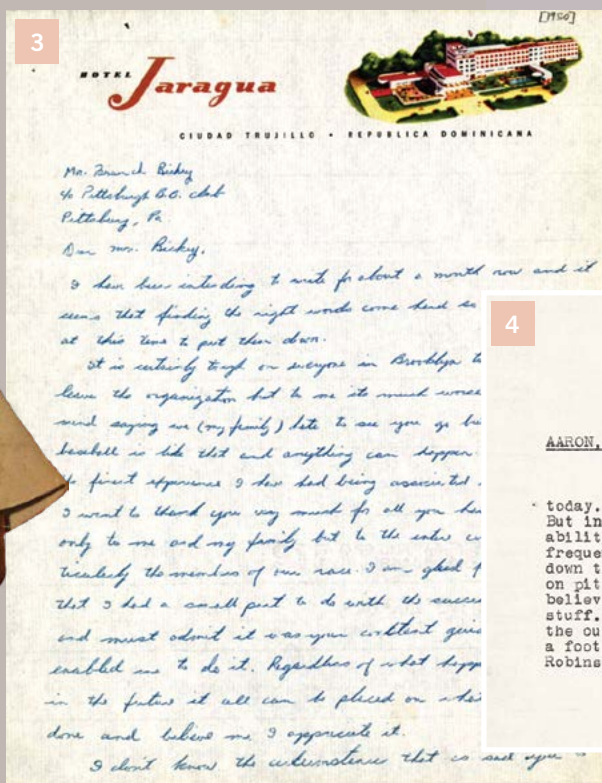 3
[1950]
HOTEL Jaragua
CIUDAD TRUJILLO • REPUBLICA DOMINICANA
Mr. Branch Rickey
c/o Pittsburgh B.B. club
Pittsburg, Pa.
Dear Mr. Rickey,
I have been intending to write for about a month now and it
seems that finding the right words come hard so
at this time to put them down.
It is certainly tough on everyone in Brooklyn to
leave the organization but to me its much worse
mind saying we (my family) hate to see you go bu
baseball is like that and anything can happen.
finest experience I have had being associated
I want to thank you very much for all you ha
only to me and my family but to the entire c
ticularly the members of our race. I am glad f
that I had a small part to do with the succe
and must admit it was your constant guid
enabled me to do it. Regardless of what happ
in the future it all can be placed on wha
done and believe me I appreciate it.
I don't know the circumstances that
4
AARON,
today.
But in
abilit
freque
down t
on pit
believ
stuff.
the ou
a foot
Robins